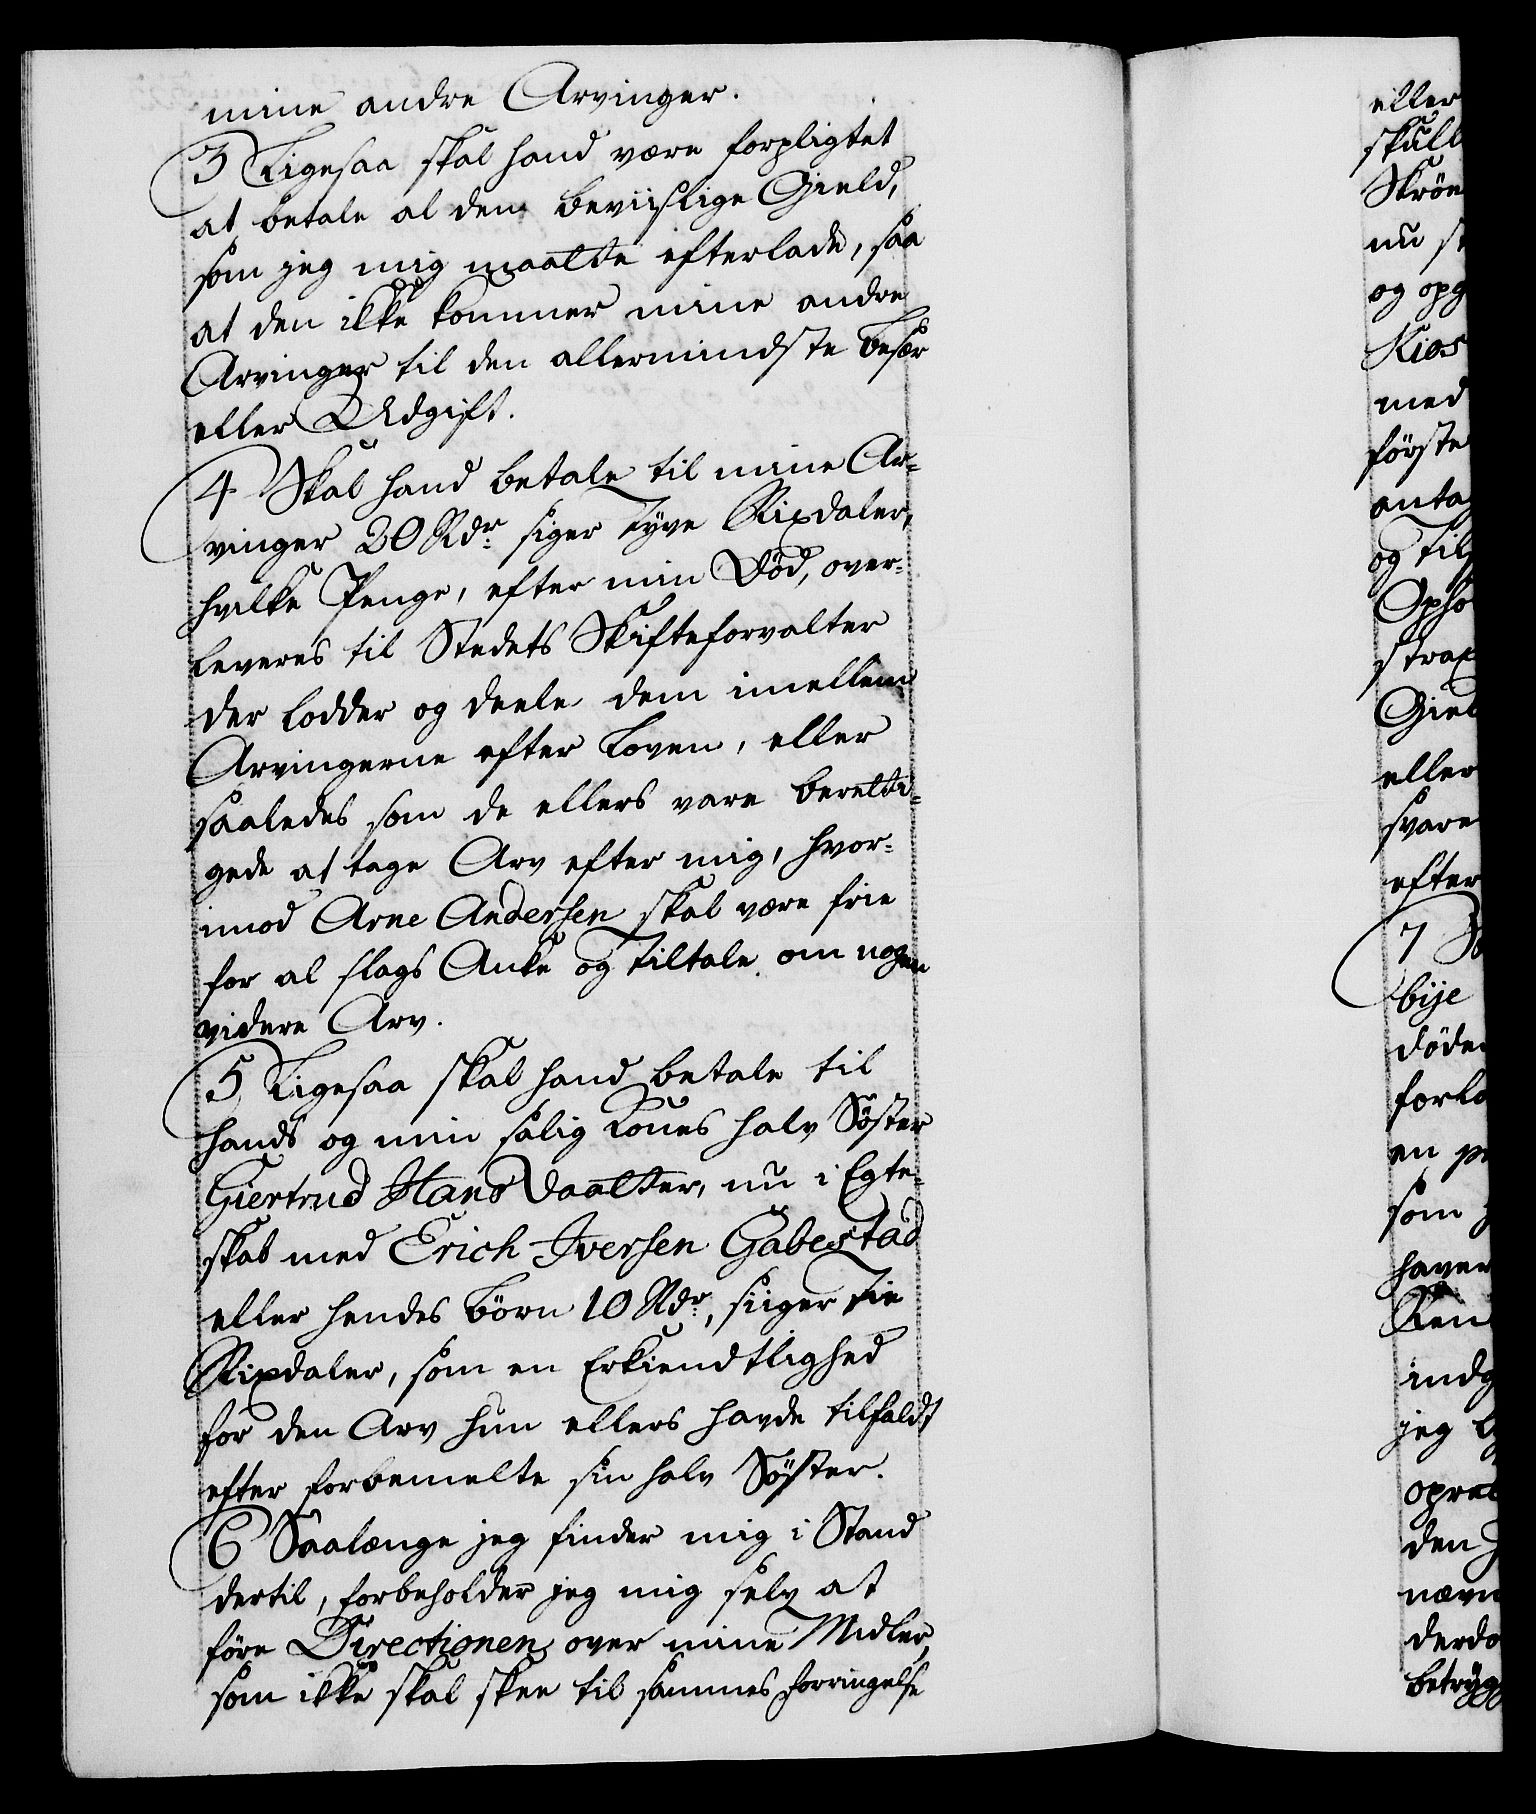 mine andre Arvinger.
3 Ligesaa skal hand være forpligtet
at betale al den beviislige Gield,
som jeg mig maatte efterlade, saa
at den ikke kommer mine andre
Arvinger til den allermindste Besvær
eller Udgift.
4 Skal hand betale til mine Ar-
vinger 20 Rdr. siger Tyve Rixdaler,
hvilke Penge, efter min Død, over-
leveres til Stedets Skifteforvalter
der lodder og deele dem imellem
Arvingerne efter Loven, eller
saaledes som de ellers vare beretti-
gede at tage Arv efter mig, hvor-
imod Arne Andersen skal være frie
for al slags Anke og Tiltale om nogen
videre Arv.
5 Ligesaa skal hand betale til
hands og min salig Kones halv Søster
Giertrud Hans Daatter, nu i Egte-
skab med Erich Iversen Gabestad
eller hendes Børn 10 Rdr., siiger Tie
Rixdaler, som en Erkiendtlighed
for den Arv hun ellers havde tilfaldt
efter forbemelte sin halv Søster.
6 Saalænge jeg finder mig i Stand
dertil, forbeholder jeg mig selv at
føre Directionen over mine Midler,
som ikke skal skee til sammes Forringelse
eller
skull
Skrøn
nu s
og opg
Kiøs
med
første
antag
og Til
Opho
strax
Giel
eller
svare
efter
7
bÿe
døde
forlo
en p
som
haver
Ren
indg
jeg
opret
den
nævn
derdo
betryg